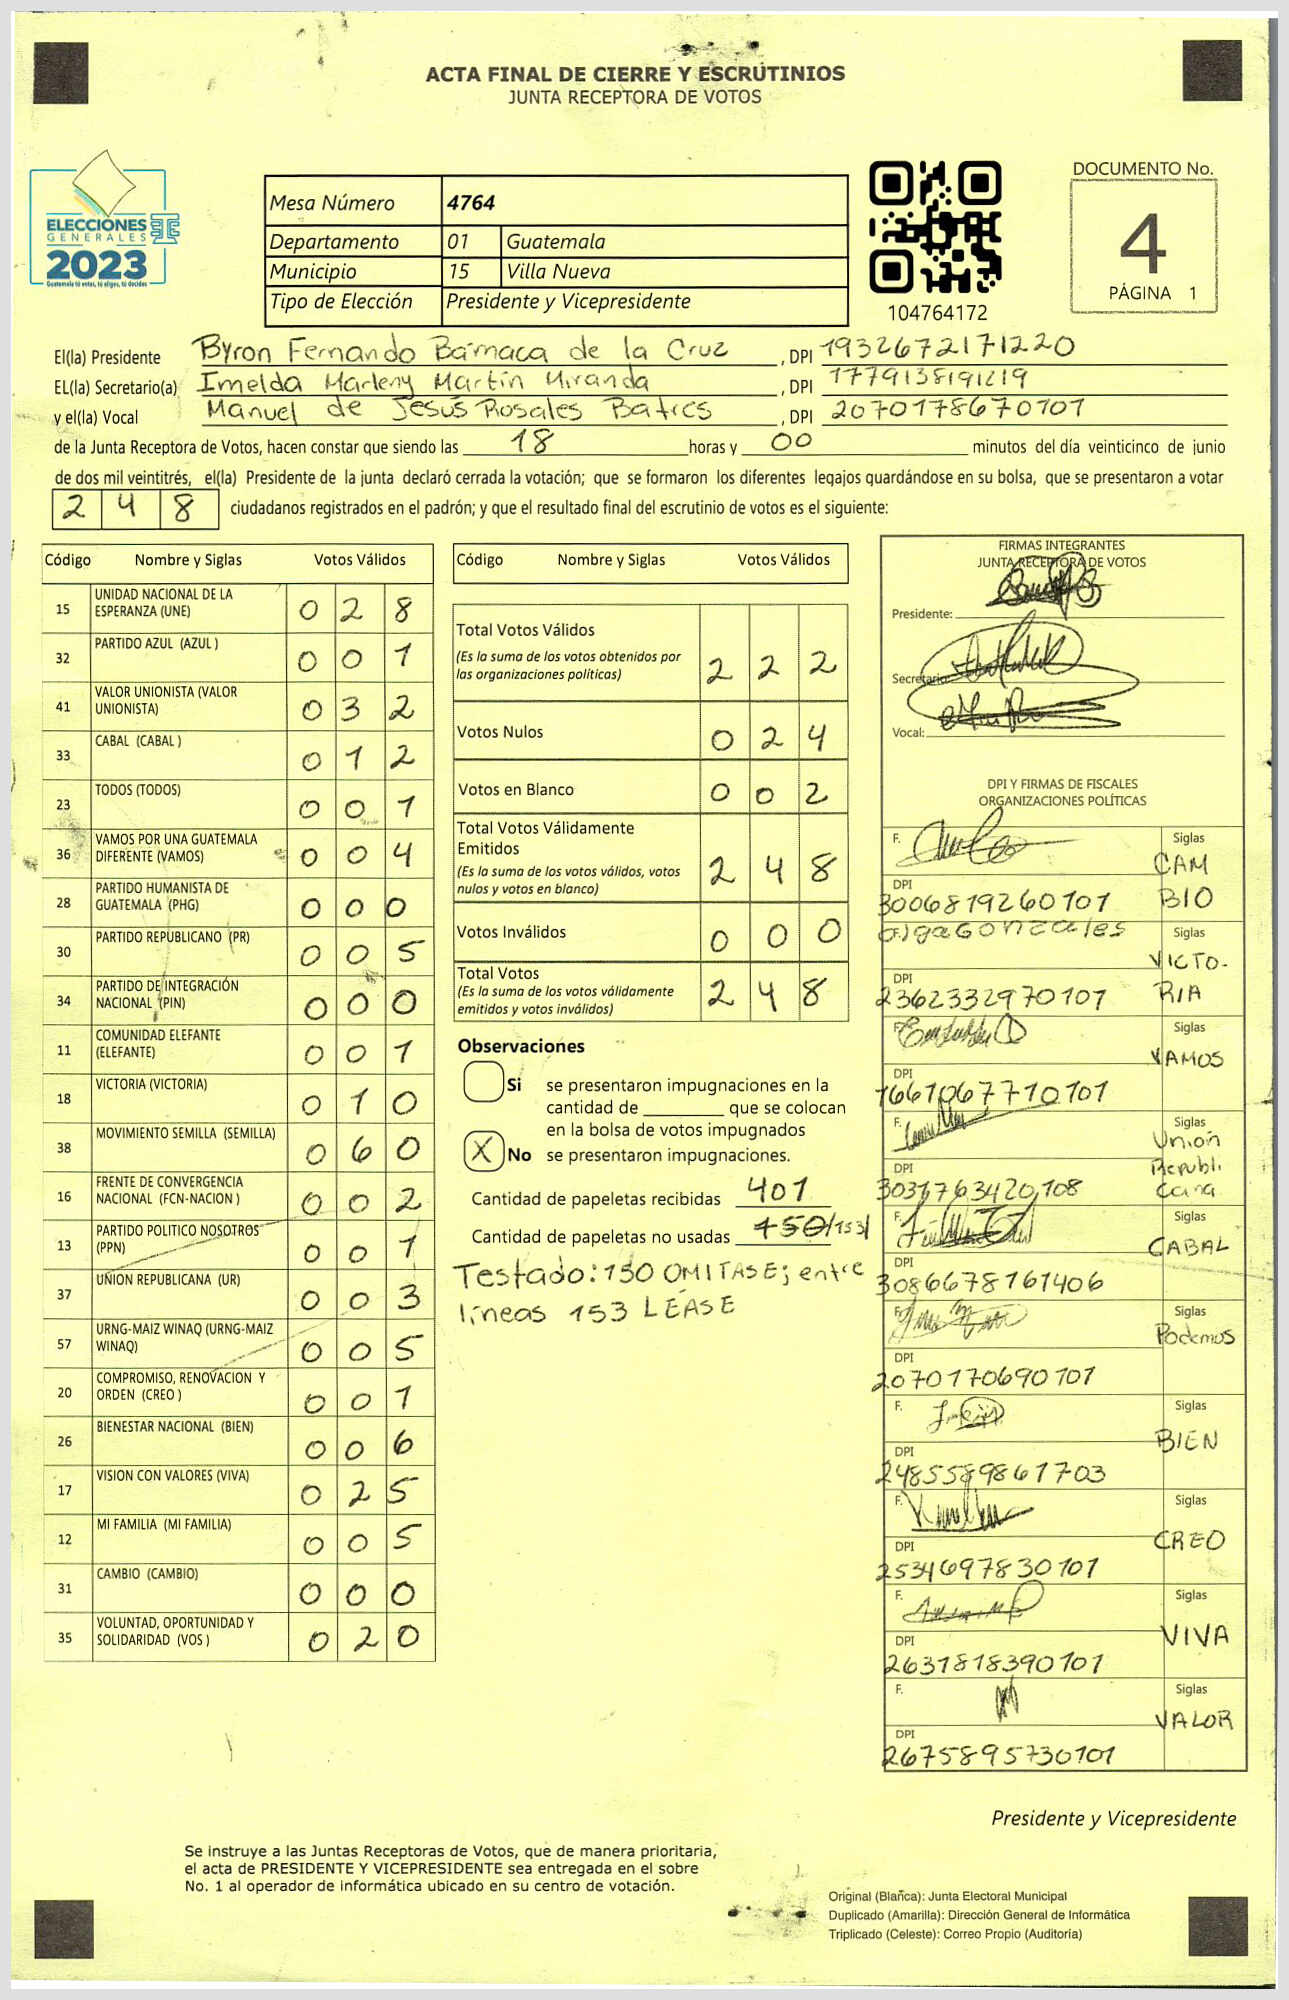 ACTA FINAL DE CIERRE Y ESCRUTINIOS
JUNTA RECEPTORA DE VOTOS
ELECCIONES
GENERALES
2023
Guatemala tú votas, tú eliges, tú decides
Mesa Número 4764
Departamento 01 Guatemala
Municipio 15 Villa Nueva
Tipo de Elección Presidente y Vicepresidente
104764172
DOCUMENTO No.
4
PÁGINA 1
El(la) Presidente Byron Fernando Bámaca de la Cruz, DPI 1932672171220
EL(la) Secretario(a) Imelda Marleny Martín Miranda, DPI 1779138191219
y el(la) Vocal Manuel de Jesús Rosales Batres, DPI 2070178670101
de la Junta Receptora de Votos, hacen constar que siendo las 18 horas y 00 minutos del día veinticinco de junio
de dos mil veintitrés, el(la) Presidente de la junta declaró cerrada la votación; que se formaron los diferentes legajos guardándose en su bolsa, que se presentaron a votar
248 ciudadanos registrados en el padrón; y que el resultado final del escrutinio de votos es el siguiente:
Código Nombre y Siglas Votos Válidos
15 UNIDAD NACIONAL DE LA ESPERANZA (UNE) 028
32 PARTIDO AZUL (AZUL ) 001
41 VALOR UNIONISTA (VALOR UNIONISTA) 032
33 CABAL (CABAL ) 012
23 TODOS (TODOS) 001
36 VAMOS POR UNA GUATEMALA DIFERENTE (VAMOS) 004
28 PARTIDO HUMANISTA DE GUATEMALA (PHG) 000
30 PARTIDO REPUBLICANO (PR) 005
34 PARTIDO DE INTEGRACIÓN NACIONAL (PIN) 000
11 COMUNIDAD ELEFANTE (ELEFANTE) 001
18 VICTORIA (VICTORIA) 010
38 MOVIMIENTO SEMILLA (SEMILLA) 060
16 FRENTE DE CONVERGENCIA NACIONAL (FCN-NACION ) 002
13 PARTIDO POLITICO NOSOTROS (PPN) 001
37 UNION REPUBLICANA (UR) 003
57 URNG-MAIZ WINAQ (URNG-MAIZ WINAQ) 005
20 COMPROMISO, RENOVACION Y ORDEN (CREO ) 001
26 BIENESTAR NACIONAL (BIEN) 006
17 VISION CON VALORES (VIVA) 025
12 MI FAMILIA (MI FAMILIA) 005
31 CAMBIO (CAMBIO) 000
35 VOLUNTAD, OPORTUNIDAD Y SOLIDARIDAD (VOS ) 020
Código Nombre y Siglas Votos Válidos
Total Votos Válidos 222
(Es la suma de los votos obtenidos por
las organizaciones políticas)
Votos Nulos 024
Votos en Blanco 002
Total Votos Válidamente
Emitidos 248
(Es la suma de los votos válidos, votos
nulos y votos en blanco)
Votos Inválidos 000
Total Votos 248
(Es la suma de los votos válidamente
emitidos y votos inválidos)
Observaciones
Si se presentaron impugnaciones en la
cantidad de ________ que se colocan
en la bolsa de votos impugnados
X No se presentaron impugnaciones.
Cantidad de papeletas recibidas 401
Cantidad de papeletas no usadas 150/153/
Testado: 150 OMITASE; entre
líneas 153 LÉASE
FIRMAS INTEGRANTES
JUNTA RECEPTORA DE VOTOS
Presidente:
Secretario:
Vocal:
DPI Y FIRMAS DE FISCALES
ORGANIZACIONES POLÍTICAS
F. Siglas CAMBIO
DPI 3006819260101
F. Olga Gonzales Siglas VICTO-RIA
DPI 2362332970101
F. Siglas VAMOS
DPI 1661067710101
F. Siglas Unión Republicana
DPI 3031763420108
F. Siglas CABAL
DPI 3086678161406
F. Siglas Podemos
DPI 2070170690101
F. Siglas BIEN
DPI 2485589861703
F. Siglas CREO
DPI 2534697830101
F. Siglas VIVA
DPI 2631818390101
F. Siglas VALOR
DPI 2675895730101
Presidente y Vicepresidente
Se instruye a las Juntas Receptoras de Votos, que de manera prioritaria,
el acta de PRESIDENTE Y VICEPRESIDENTE sea entregada en el sobre
No. 1 al operador de informática ubicado en su centro de votación.
Original (Blanca): Junta Electoral Municipal
Duplicado (Amarilla): Dirección General de Informática
Triplicado (Celeste): Correo Propio (Auditoría)